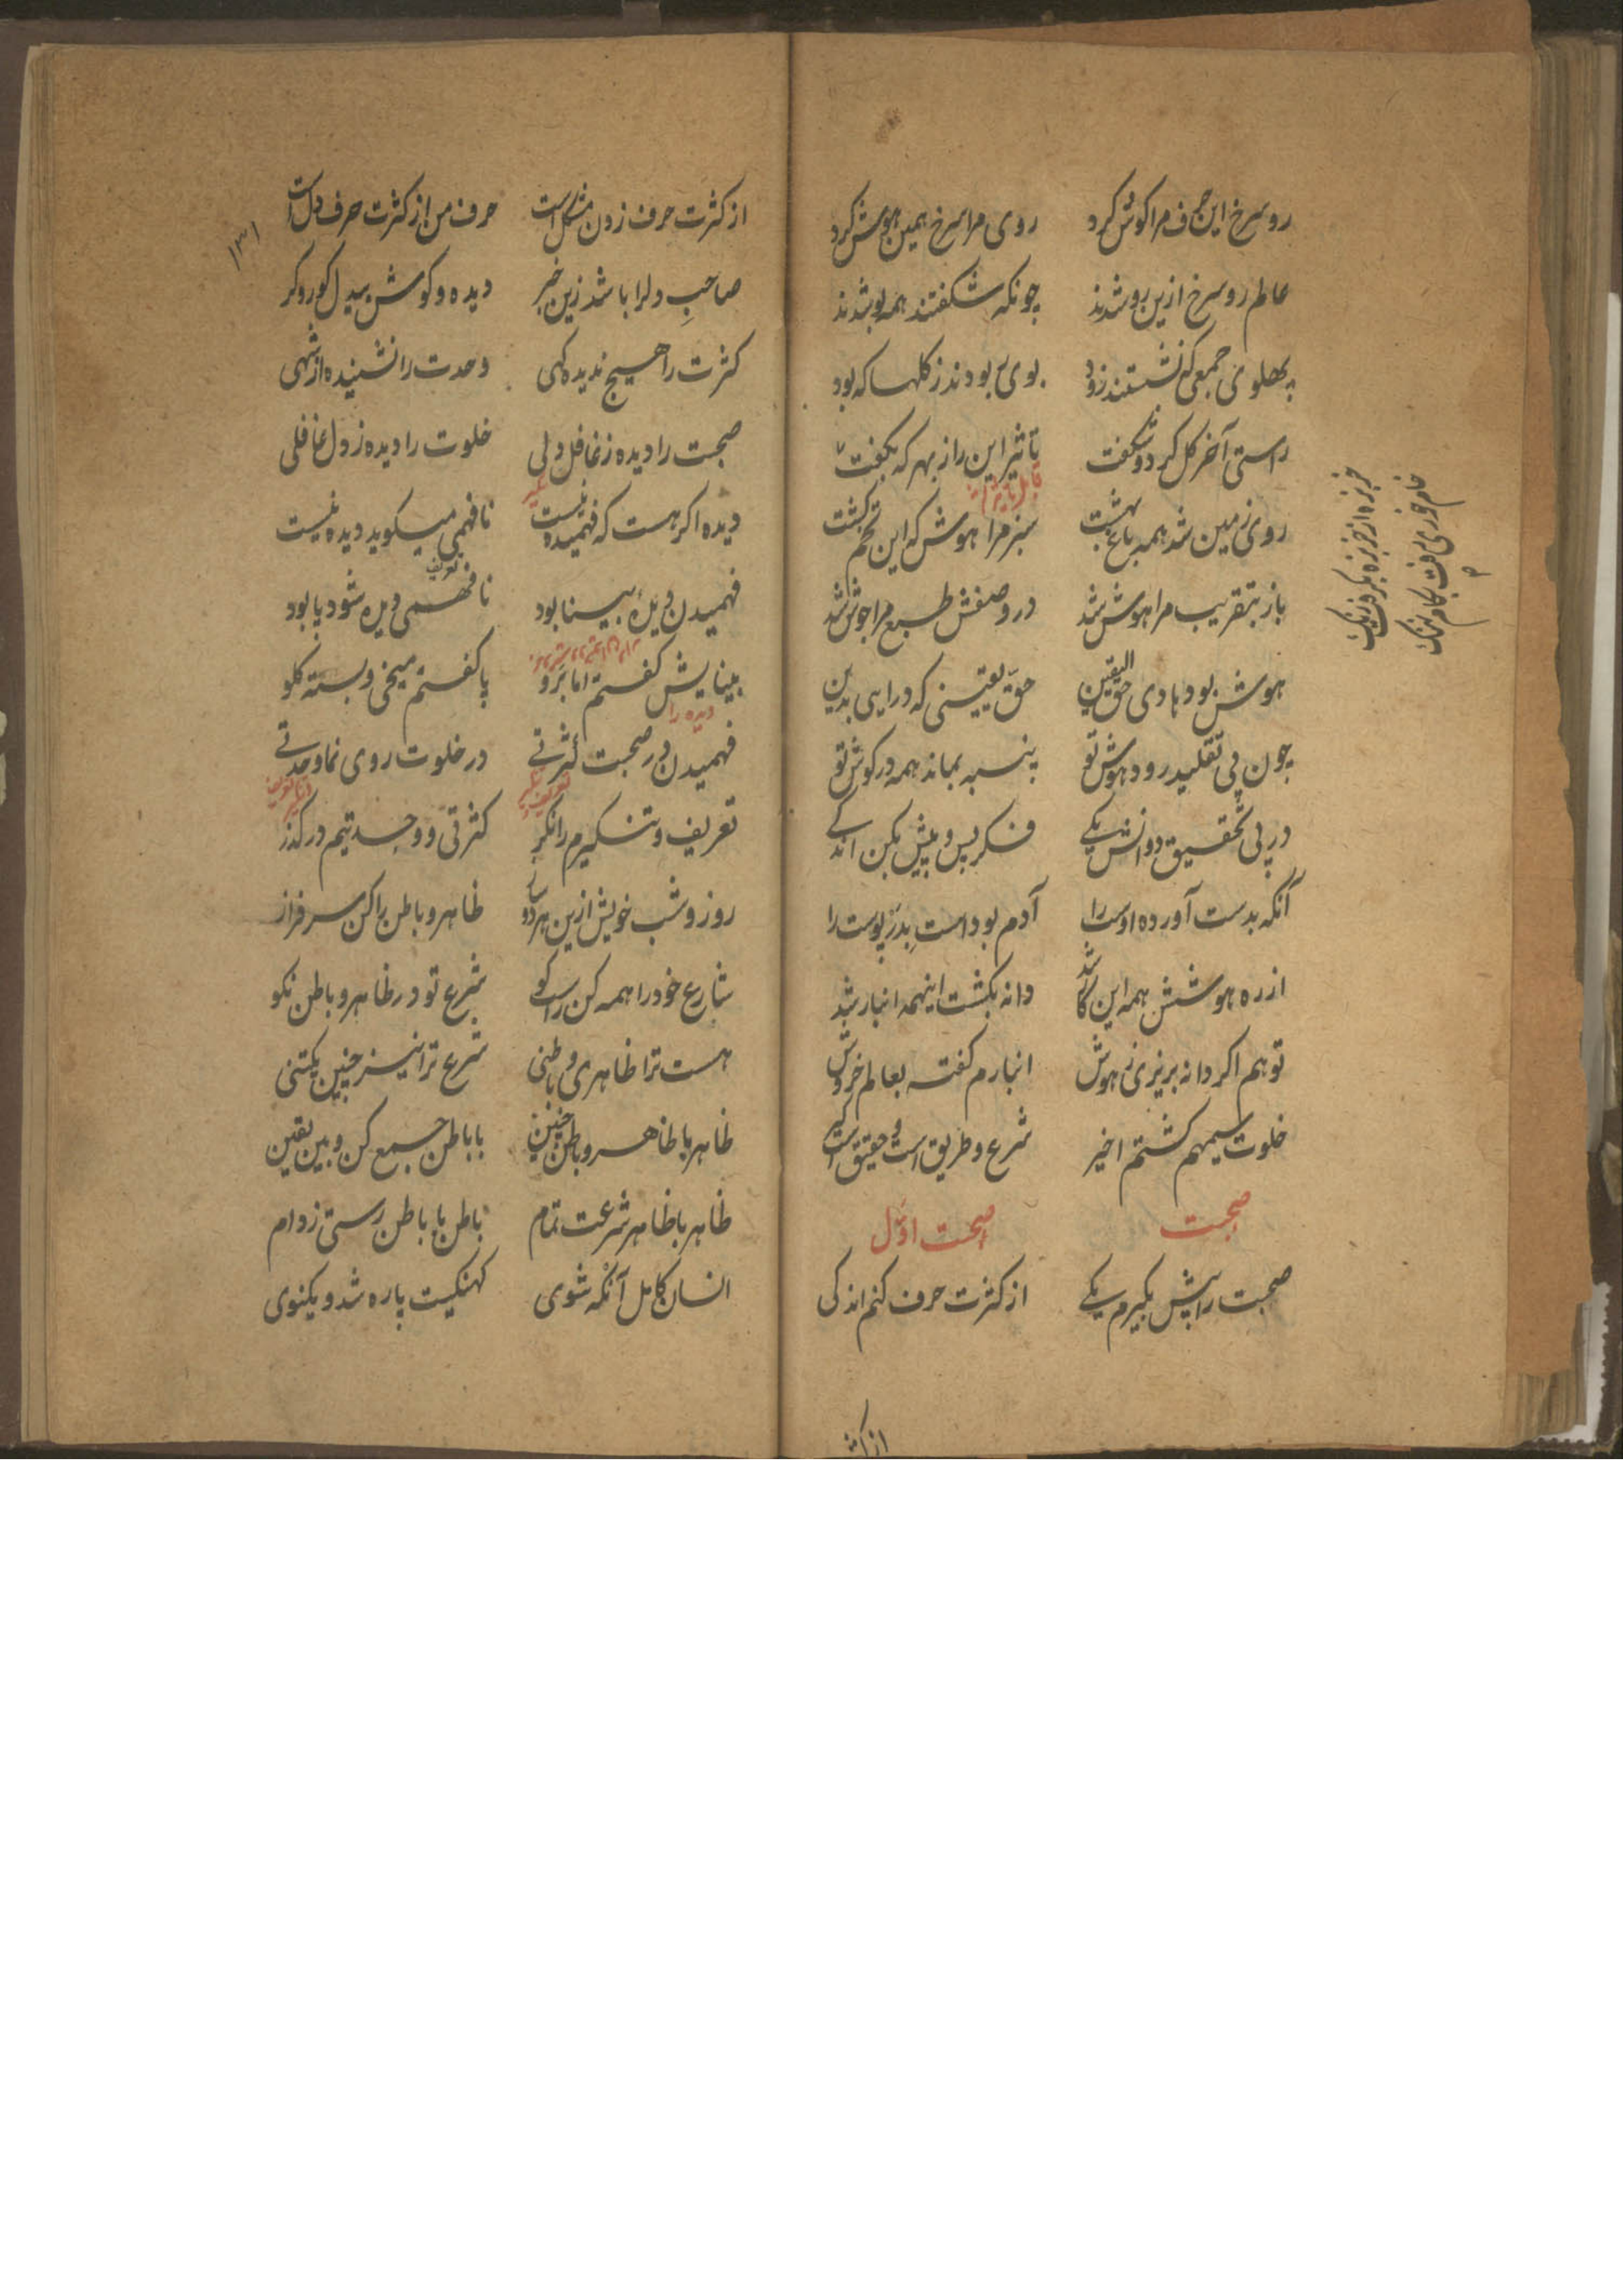 رو سرخ این حرف مرا گوش کرد روی مرا سرخ همین هوش کرد
عالم رو سرخ ازین رو شدند چونکه شکفتند همه بو شدند
پهلوی جمعی که نشستند زود بوی بودند ز کلها که بود
راستی آخر کل کرد و شکفت تاثیر این راز بهر که بگفت
روی زمین شد همه باغ بهشت سبز مرا هوش که این تخم کشت
باز بتقریب مرا هوش شد در وصفش طبع مرا جوش شد
هوش بود هادی حق الیقین حق یقینی که درایی بدین
چون پی تقلید رود هوش تو پنبه بماند همه در کوش تو
در پی تحقیق دوانش یکی فکر پس و پیش بکن اندکی
آنکه بدست آورده اوست را آدم بوداست بدر پوست را
از ره هوشش همه این کار شد دانه بکشت اینهمه انبار شد
تو هم اکر دانه بریزی ز هوش انبارم کفته بعالم خروش
خلوت سیمهم کشتم اخیر شرع و طریق است و حقیقت
صحبت صحبت اول
صحبت را پیش بگیرم یکی از کثرت حرف کنم اندکی
خربزه از خربزه بگیرد رنگ
از کثرت
۱۳۱
از کثرت حرف زدن مشکل است حرف من از کثرت حرف دل است
صاحب دلرا باشد زین خبر دیده و کوش بیدل کور و کر
کثرت را هیچ ندیده کهی وحدت را نشنیده از شهی
صحبت را دیده ز غافل دلی خلوت را دیده ز دل غافلی
دیده اکر هست که فهمیده نیست نافهمی میکوید دیده نیست
فهمیدن دیده بینا بود نافهمی دیده شود یا بود
بینایش کفتم اما برو پا کفتم میخی و بسته کلو
دیده را
فهمیدن در صحبت کثرتی در خلوت روی نما وحدتی
تعریف و تنکیرم را نکر کثرتی و وحدتیم در کذر
روز و شب خویش ازین هر دو ساز ظاهر و باطن را کن سرفراز
شارع خود را همه کن راست کو شرع تو در ظاهر و باطن نکو
هست ترا ظاهری و باطنی شرع ترا نیز چنین یکتنی
ظاهر با ظاهر و باطن چنین با باطن جمع کن و بین یقین
ظاهر با ظاهر شرعت تمام باطن با باطن رستی ز دام
انسان کامل آنکه شوی کهنکیت پاره شد و یکنوی